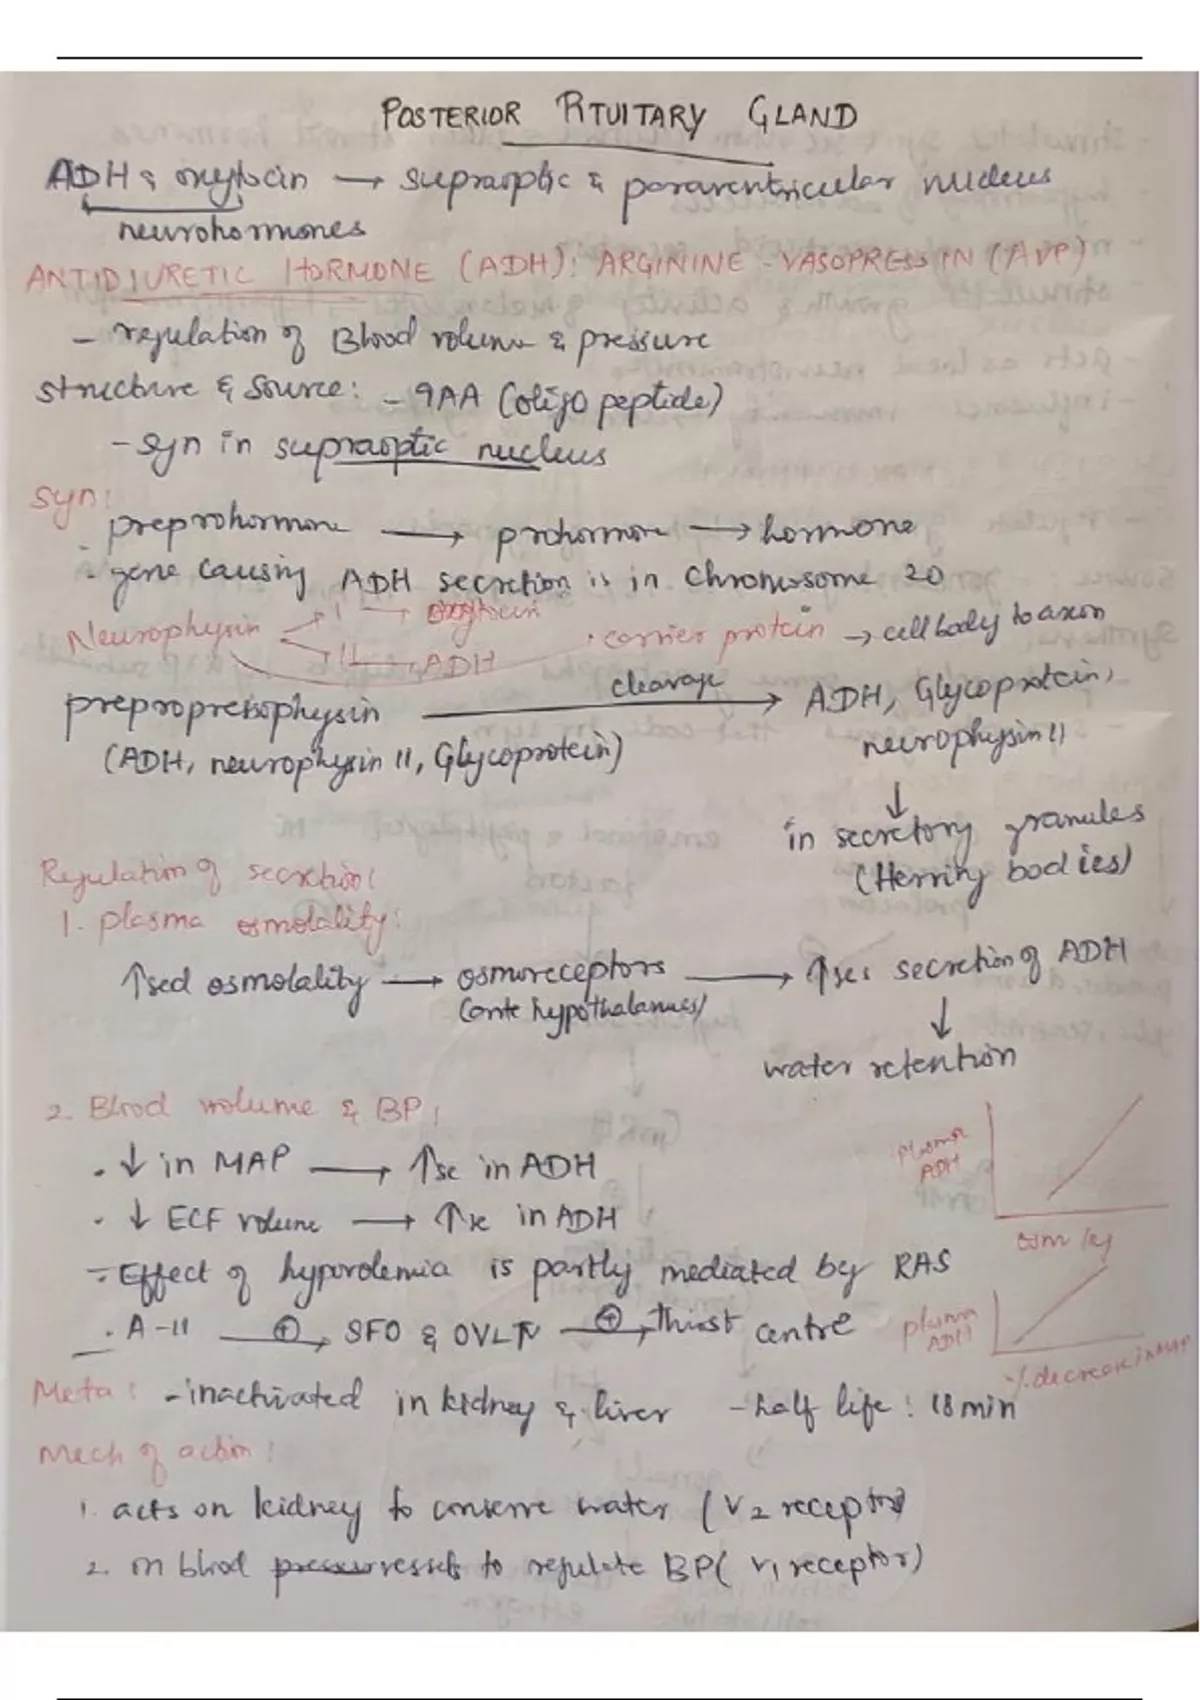 POSTERIOR PITUITARY GLAND
ADH & oxytocin → supraoptic & paraventricular nucleus
neurohormones
ANTIDIURETIC HORMONE (ADH): ARGININE VASOPRESSIN (AVP)
- regulation of Blood volume & pressure
structure & Source: - 9AA (oligo peptide)
- syn in supraoptic nucleus
Syn:
preprohormone → prohormone → hormone
. gene causing ADH secretion is in Chromosome 20
Neurophysin → I → oxytocin
→ II → ADH
. carrier protein → cell body to axon
prepropressophysin cleavage → ADH, Glycoprotein,
(ADH, neurophysin II, Glycoprotein)
neurophysin II
↓
in secretory granules
(Herring bodies)
Regulation of secretion:
1. plasma osmolality:
↑sed osmolality → osmoreceptors → ↑ses secretion of ADH
(ante hypothalamus)
↓
water retention
2. Blood volume & BP:
. ↓ in MAP → ↑se in ADH
. ↓ ECF volume → ↑se in ADH
- Effect of hypovolemia is partly mediated by RAS
. A-II ⊕→ SFO & OVLT ⊕→ Thirst centre
plasma
ADH
osm/kg
plasma
ADH
% decrease in MAP
Meta: - inactivated in kidney & liver - half life: 18 min
Mech of action:
1. acts on kidney to conserve water (V2 receptor)
2. on blood vessels to regulate BP (V1 receptor)